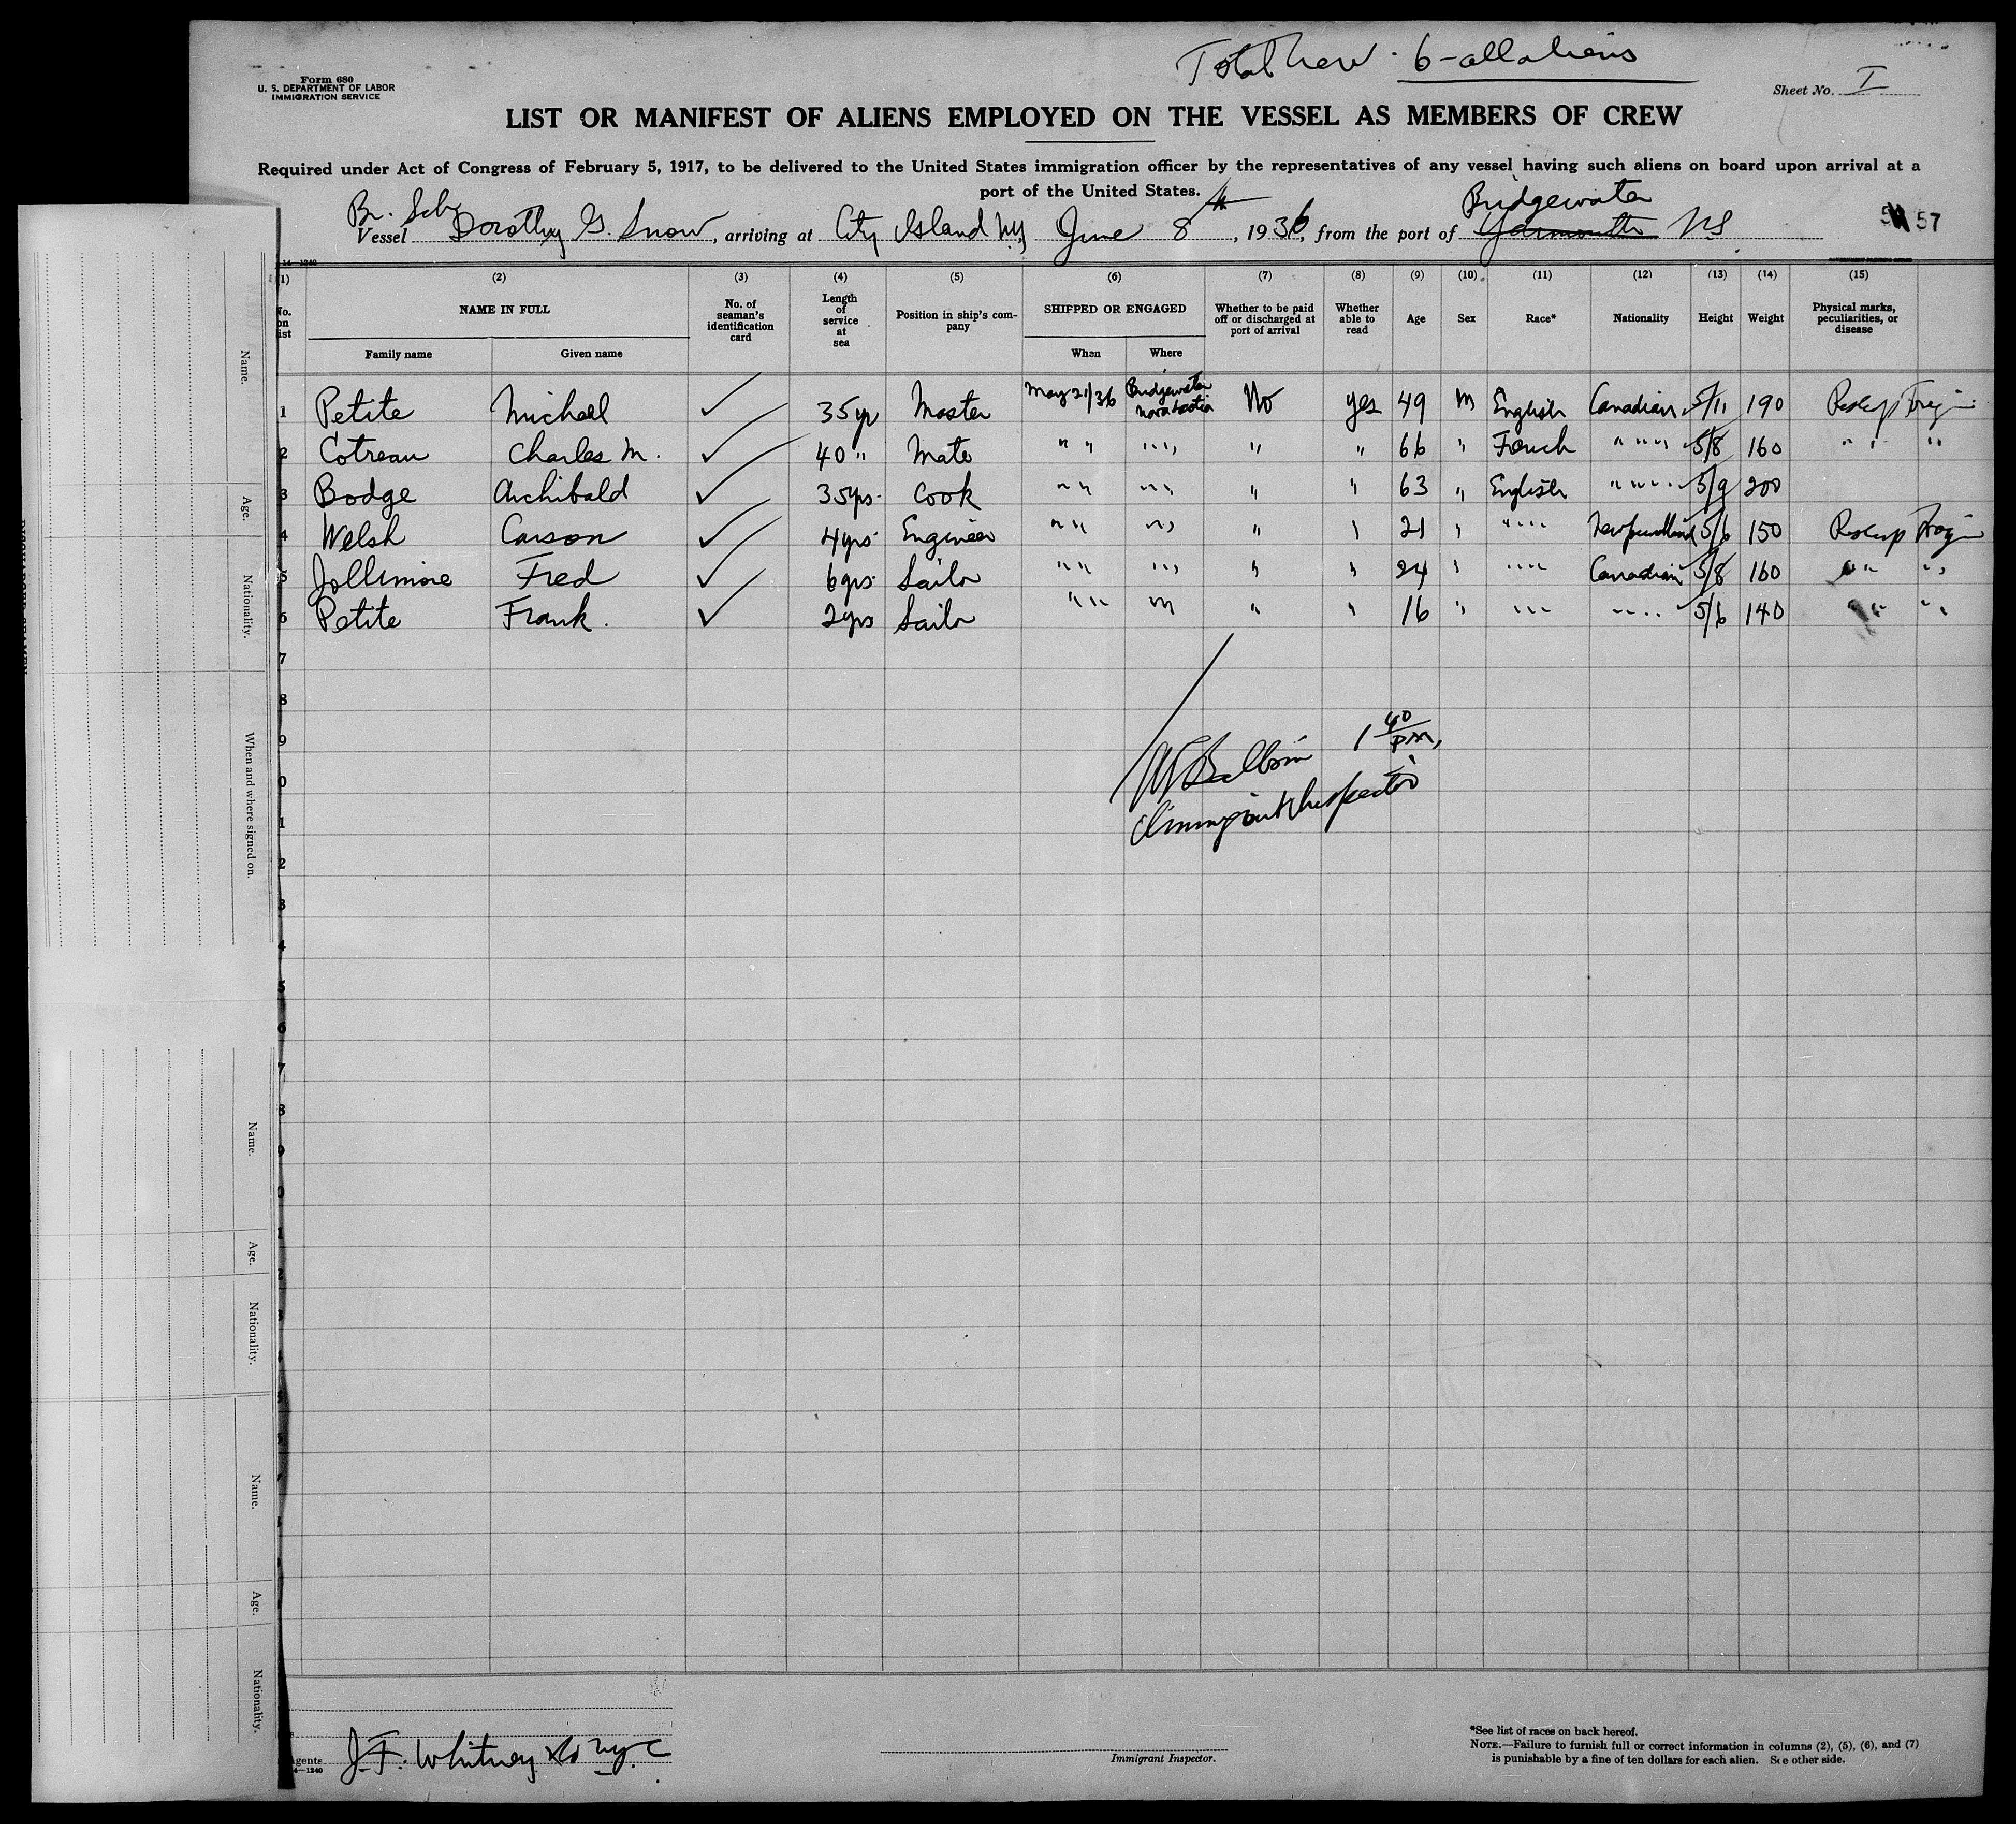 Total Crew - 6 - all aliens
Form 680
U. S. DEPARTMENT OF LABOR
IMMIGRATION SERVICE
Sheet No. I
LIST OR MANIFEST OF ALIENS EMPLOYED ON THE VESSEL AS MEMBERS OF CREW
Required under Act of Congress of February 5, 1917, to be delivered to the United States immigration officer by the representatives of any vessel having such aliens on board upon arrival at a
port of the United States.
Br. Sch Bridgewater
Vessel Dorothy G. Snow, arriving at City Island NY, June 8th, 1936, from the port of Yarmouth NS 57
14-1240
(1) (2) (3) (4) (5) (6) (7) (8) (9) (10) (11) (12) (13) (14) (15)
No. on list NAME IN FULL Family name Given name No. of seaman's identification card Length of service at sea Position in ship's company SHIPPED OR ENGAGED When Where Whether to be paid off or discharged at port of arrival Whether able to read Age Sex Race* Nationality Height Weight Physical marks, peculiarities, or disease
1 Petite Michael ✓ 35 yr Master May 21/36 Bridgewater Nova Scotia No yes 49 M English Canadian 5/11 190
2 Cotreau Charles M. ✓ 40 " Mate " " " " " " 66 " French " " " " 5/8 160 " " "
3 Bodge Archibald ✓ 35 yrs. Cook " " " " " " 63 " English " " " " 5/9 200
4 Welsh Carson ✓ 4 yrs. Engineer " " " " " " 21 " " " " " Newfoundland 5/6 150
5 Jollimore Fred ✓ 6 yrs. Sailor " " " " " " 24 " " " " " Canadian 5/8 160 " " "
6 Petite Frank. ✓ 2 yrs Sailor " " " " " " 16 " " " " " " " " 5/6 140 " " "
7
8
9
0
1
2
3
4
5
6
7
8
9
0
1
2
3
1 40 pm,
Immigrant Inspector
Agents J. F. Whitney & Co NYC
14-1240
Immigrant Inspector.
*See list of races on back hereof.
NOTE.—Failure to furnish full or correct information in columns (2), (5), (6), and (7)
is punishable by a fine of ten dollars for each alien. See other side.
Name.
Age.
Nationality.
When and where signed on.
Name.
Age.
Nationality.
Name.
Age.
Nationality.